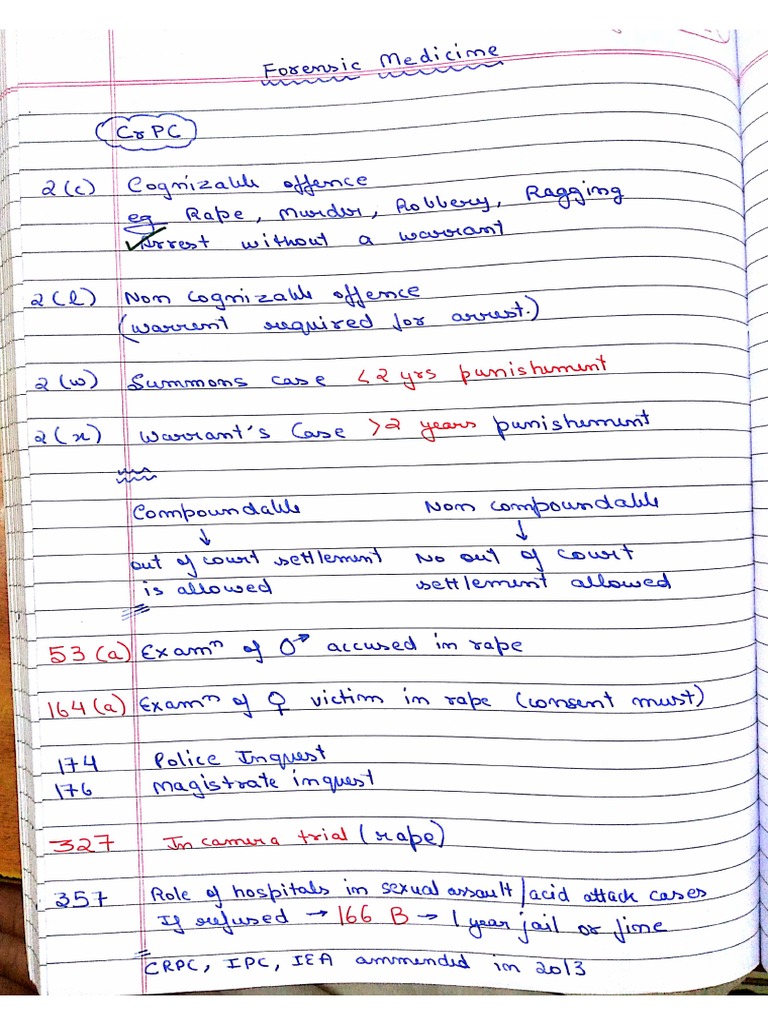 Forensic Medicine
CrPC
2(c) Cognizable offence
eg Rape, Murder, Robbery, Ragging
Arrest without a warrant
2(l) Non Cognizable offence
(warrent required for arrest.)
2(w) Summons case <2 yrs punishement
2(x) Warrant's Case >2 years punishement
Compoundable Non compoundable
↓ ↓
out of court settlement No out of court
is allowed settlement allowed
53(a) Examⁿ of ♂ accused in rape
164(a) Examⁿ of ♀ victim in rape (consent must)
174 Police Inquest
176 Magistrate inquest
327 In camera trial (rape)
357 Role of hospitals in sexual assault/acid attack cases
If refused → 166 B → 1 year jail or fine
CRPC, IPC, IEA ammended in 2013